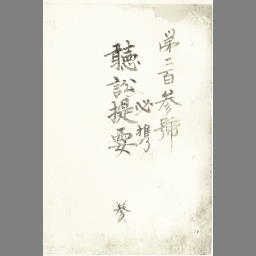 第二百参號
必携
聽訟提要
參